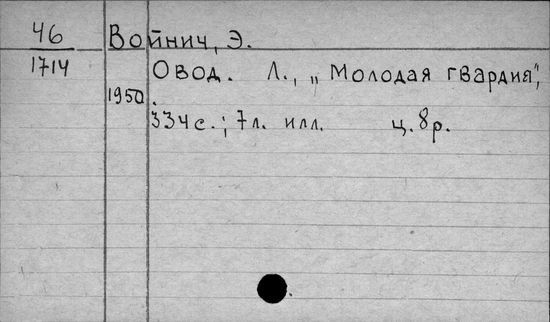 46 Войнич, Э.
1714 Овод. Л., „Молодая гвардия",
1950.
334с.; 7л. илл. ц. 8р.